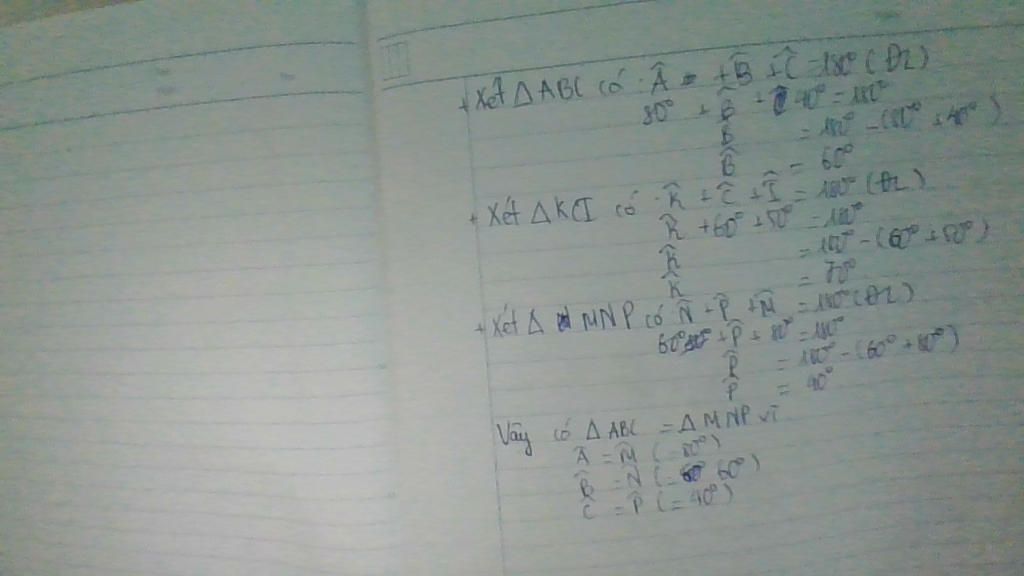 + Xét ΔABC có : Â + B̂ + Ĉ = 180° (Đl)
80° + B̂ + 40° = 180°
B̂ = 180° - (80° + 40°)
B̂ = 60°
+ Xét ΔKCI có : K̂ + Ĉ + Î = 180° (Đl)
K̂ + 60° + 50° = 180°
K̂ = 180° - (60° + 50°)
K̂ = 70°
+ Xét Δ MNP có N̂ + P̂ + M̂ = 180° (Đl)
60° + P̂ + 80° = 180°
P̂ = 180° - (60° + 80°)
P̂ = 40°
Vậy có Δ ABC = Δ MNP vì
Â = M̂ (= 80°)
B̂ = N̂ (= 60°)
Ĉ = P̂ (= 40°)